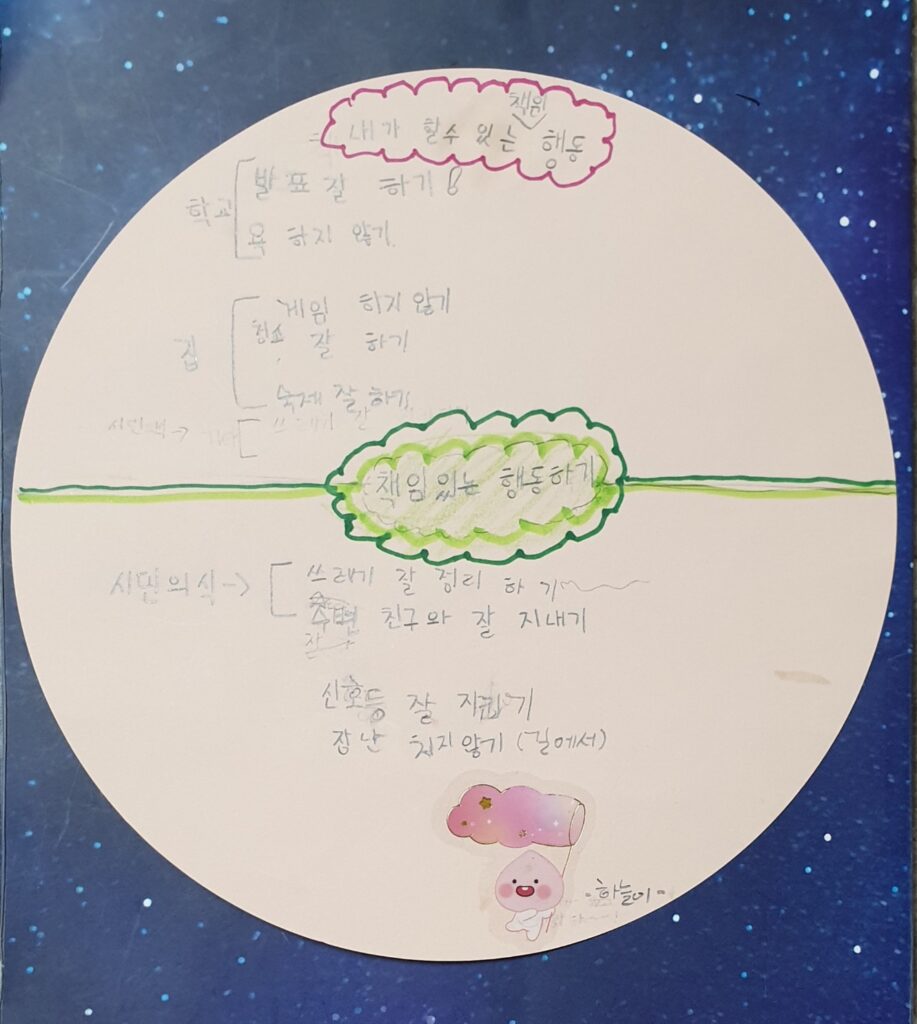 책임
내가 할수 있는 행동
학교
발표 잘 하기
욕 하지 않기
집
게임 하지 않기
청소 잘 하기
숙제 잘 하기
쓰레기 잘
책임있는 행동하기
시민의식->
쓰레기 잘 정리 하기~
주변 친구와 잘 지내기
신호등 잘 지키기
장난 치지않기 (길에서)
-하늘이-